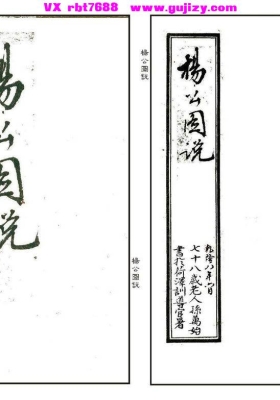 VX rbt7688 www.gujizy.com
楊公圖説
楊公圖説
楊公圖説
乾隆八年六月
七十八歲老人孫萬始
書於荷澤訓導官署
楊公圖説